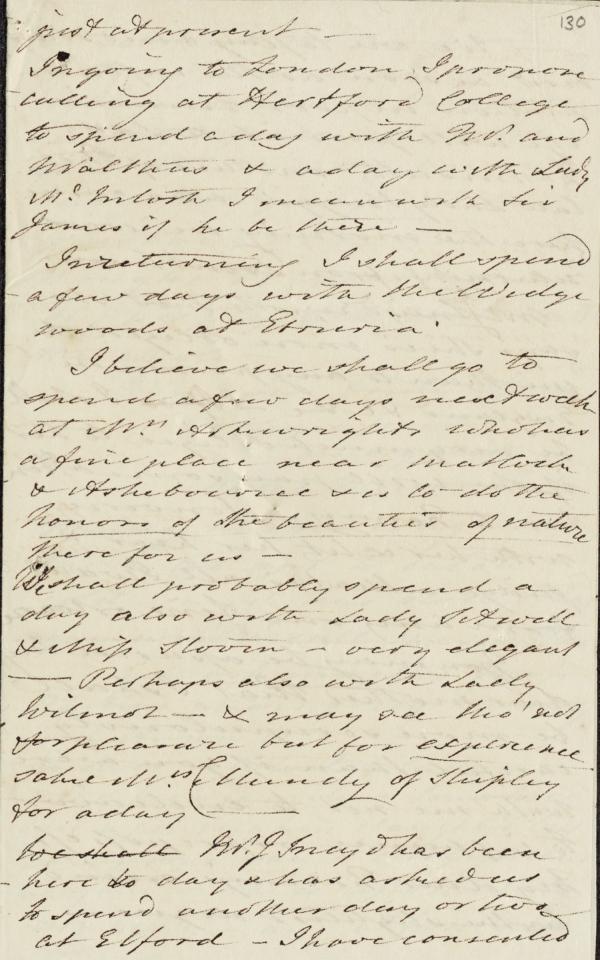 130
just at present —
In going to London, I propose
calling at Hertford College
to spend a day with Mr. and
Malthus & a day with Lady
Mc. Intosh I mean with Sir
James if he be there —
In returning I shall spend
a few days with the Wedge
woods at Etruria.
I believe we shall go to
spend a few days next week
at Mrs Arkwrights who has
a fine place near Matlock
& Ashebourne & is to do the
honors of the beauties of nature
there for us —
We shall probably spend a
day also with Lady Sitwell
& Miss Stovin — very elegant
— Perhaps also with Lady
Wilmot — & may see tho' not
for pleasure but for experience
sake Mrs Mundy of Shipley
for a day —
we shall Mr. J Sneyd has been
here to day & has asked us
to spend another day or two
at Elford — I have consented